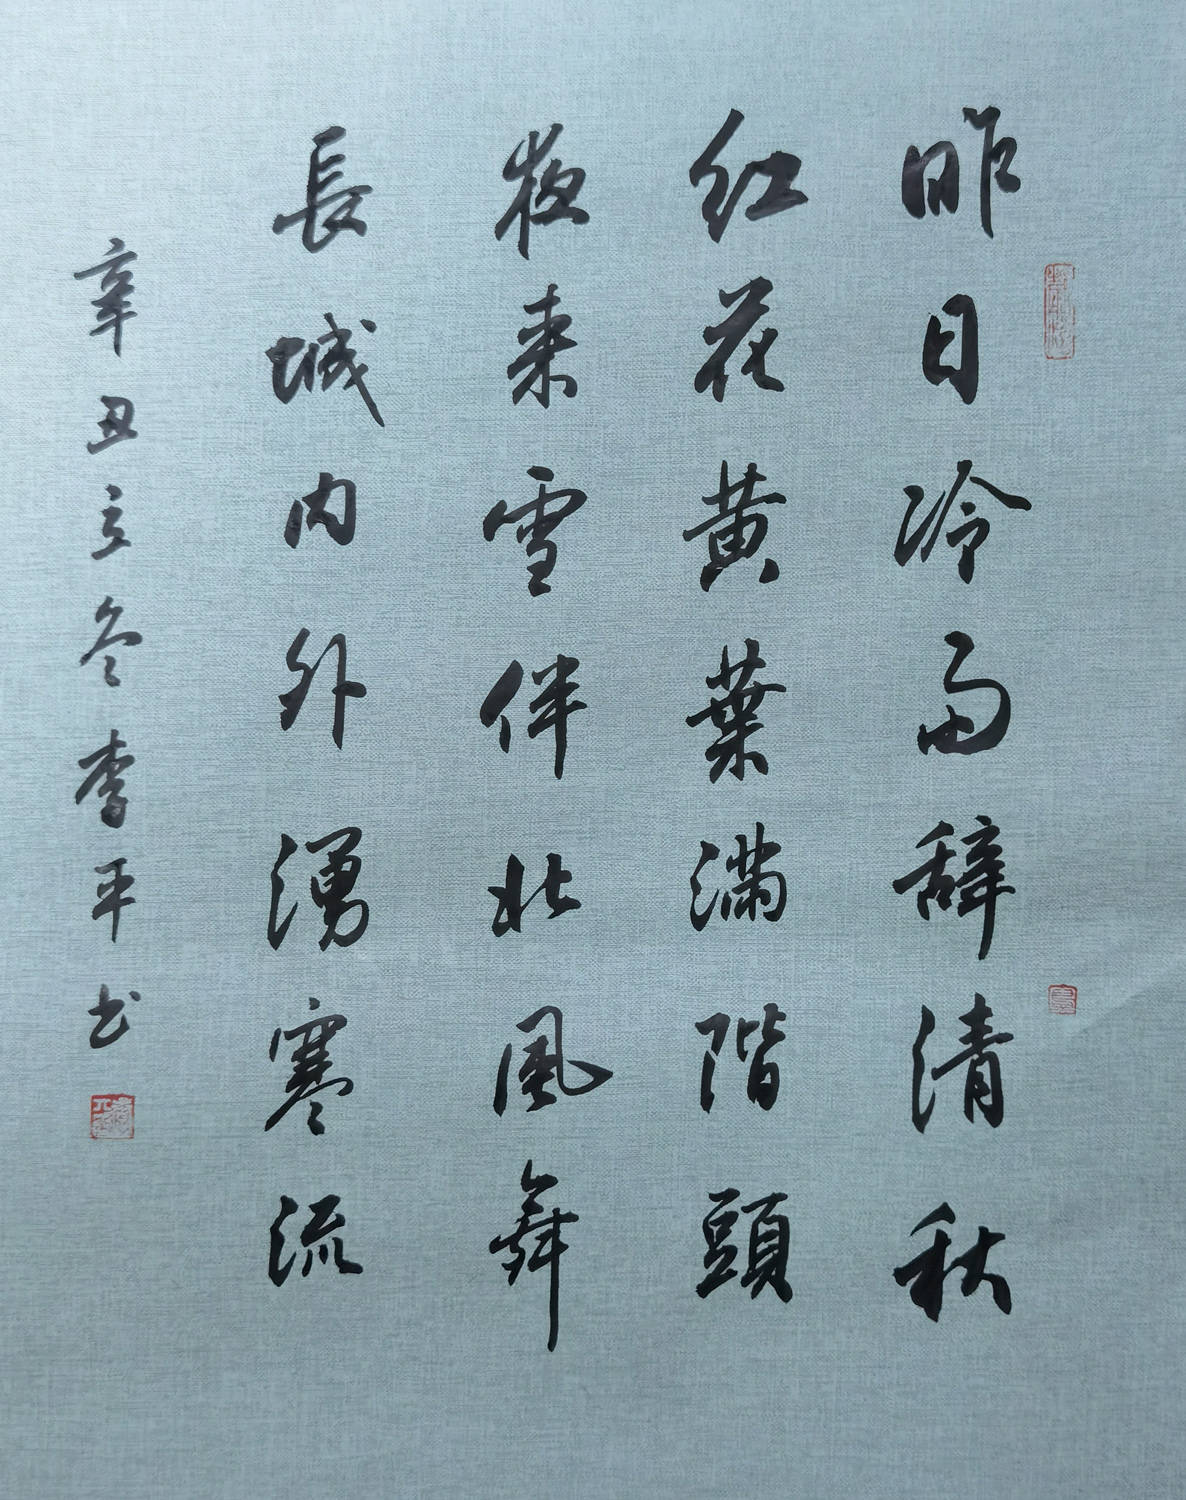 昨日冷雨辞清秋
红花黄葉满階頭
夜来雪伴北風舞
長城内外湧寒流
辛丑立冬李平书